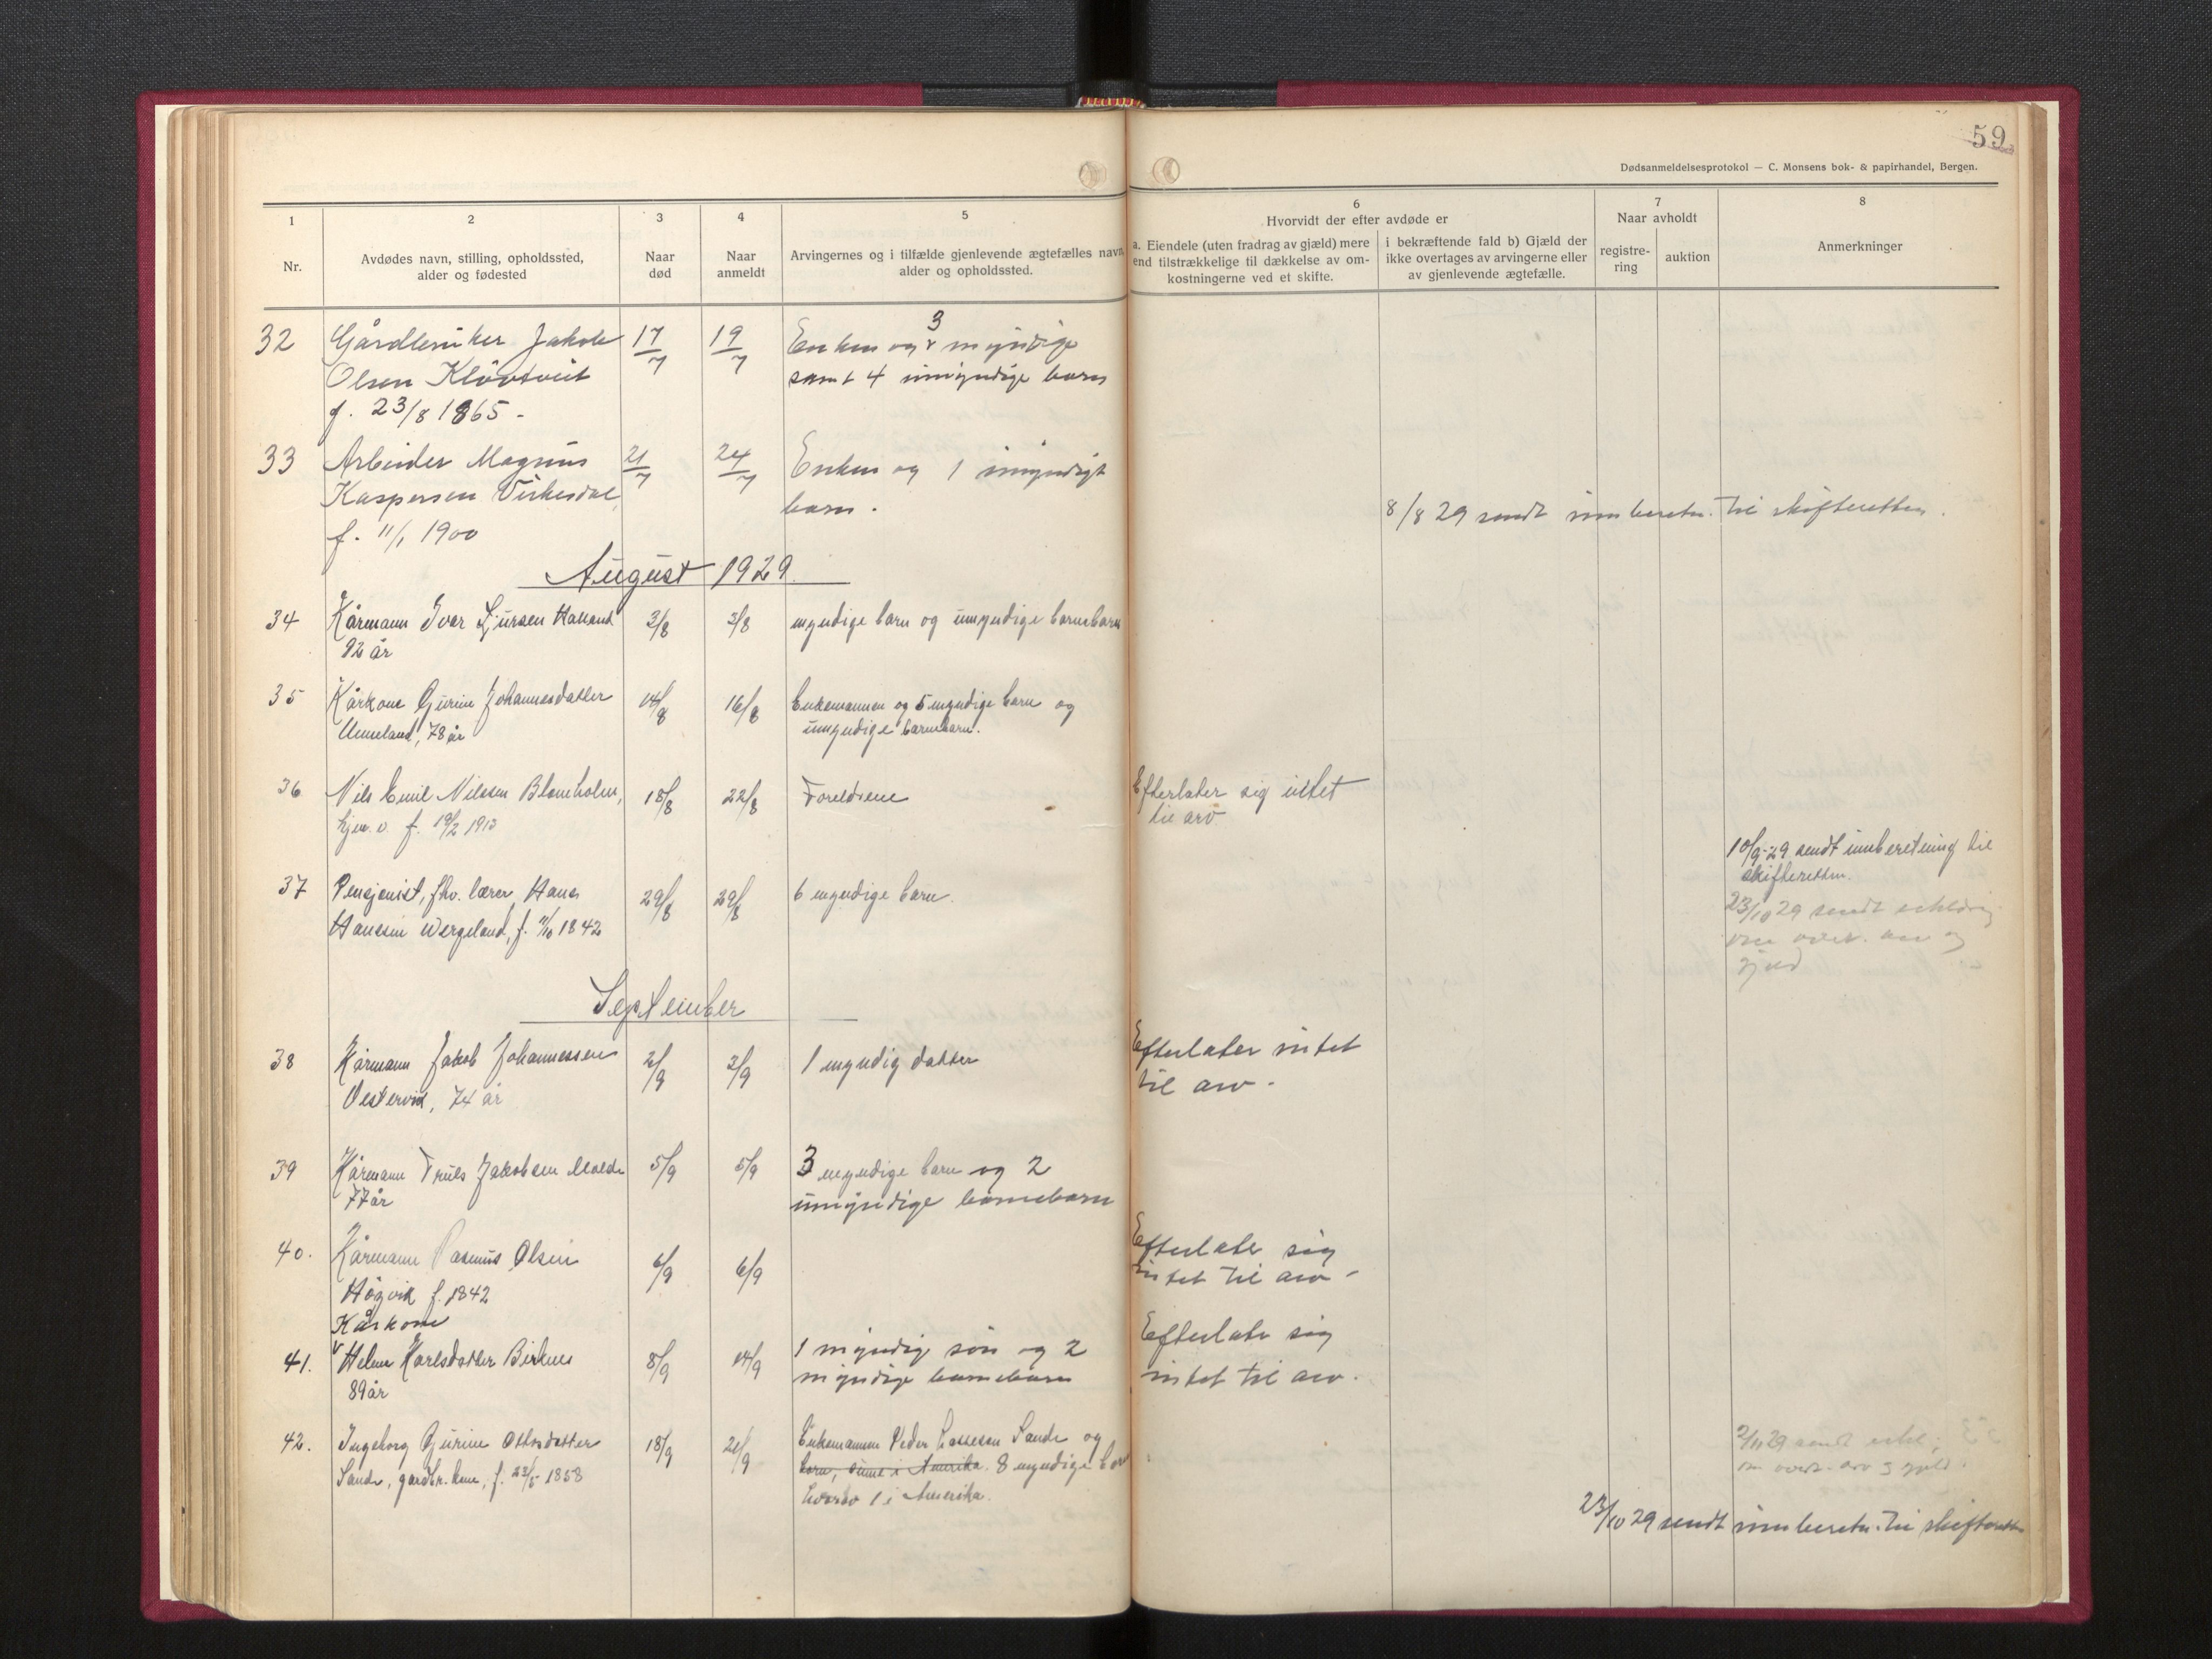 59
Dødsanmeldelsesprotokol — C. Monsens bok- & papirhandel, Bergen.
1
Nr.
2
Avdødes navn, stilling, opholdssted,
alder og fødested
3
Naar
død
4
Naar
anmeldt
5
Arvingernes og i tilfælde gjenlevende ægtefælles navn,
alder og opholdssted.
6
Hvorvidt der efter avdøde er
a. Eiendele (uten fradrag av gjæld) mere
end tilstrækkelige til dækkelse av om-
kostningerne ved et skifte.
i bekræftende fald b) Gjæld der
ikke overtages av arvingerne eller
av gjenlevende ægtefælle.
7
Naar avholdt
registre-
ring
auktion
8
Anmerkninger
32 Gårdbruker Jakob 17/7 19/7 Enken og 3 myndige
Olsen Klövtveit samt 4 umyndige barn
f. 23/8 1865 -
33 Arbeider Magnus 21/7 24/7 Enken og 1 umyndigt
Kaspersen Virkesdal, barn.
f. 11/1 1900
8/8 29 sendt innberetn. til skifteretten.
August 1929
34 Kårmann Ivar Sjursen 3/8 3/8 myndige barn og umyndige barnebarn
92 år
35 Kårkone Gurine Johannesdatter 14/8 16/8 Enkemannen og 5 myndige barn og
Unneland, 78 år umyndige barnebarn.
36 Nils Emil Nilssen Blomholm, 18/8 22/8 Foreldrene Efterlater sig intet
hjem. v. f. 19/2 1913 til arv
37 Pensjonist, fhv. lærer Hans 29/8 29/8 6 myndige barn.
Hansen Wergeland, f. 11/10 1842
10/9-29 sendt innberetning til
skifteretten.
23/10 29 sendt erklæring
om overt. arv og
gjeld
September
38 Kårmann Jakob Johannessen 2/9 3/9 1 myndig datter Efterlater intet
Vestervik, 74 år til arv -
39 Kårmann Truls Jakobsen Molde 5/9 5/9 3 myndige barn og 2
77 år umyndige barnebarn
40. Kårmann Rasmus Olsen 6/9 6/9 Efterlater sig
Høgvik f. 1842 intet til arv -
Kårkone
41. Helene Karlsdatter Birknes 8/9 14/9 1 myndig søn og 2 Efterlater sig
89 år myndige barnebarn intet til arv.
42. Ingeborg Gurine Ottosdatter 18/9 21/9 Enkemannen Peder Lassesen Sande og
Sande, gardbr. kone, f. 22/5 1858 barn, i Amerika. 8 myndige barn
hvorav 1 i Amerika.
2/11 29 sendt erkl.
om overt. arv og gjeld.
23/10 29 sendt innberetn. til skifteretten